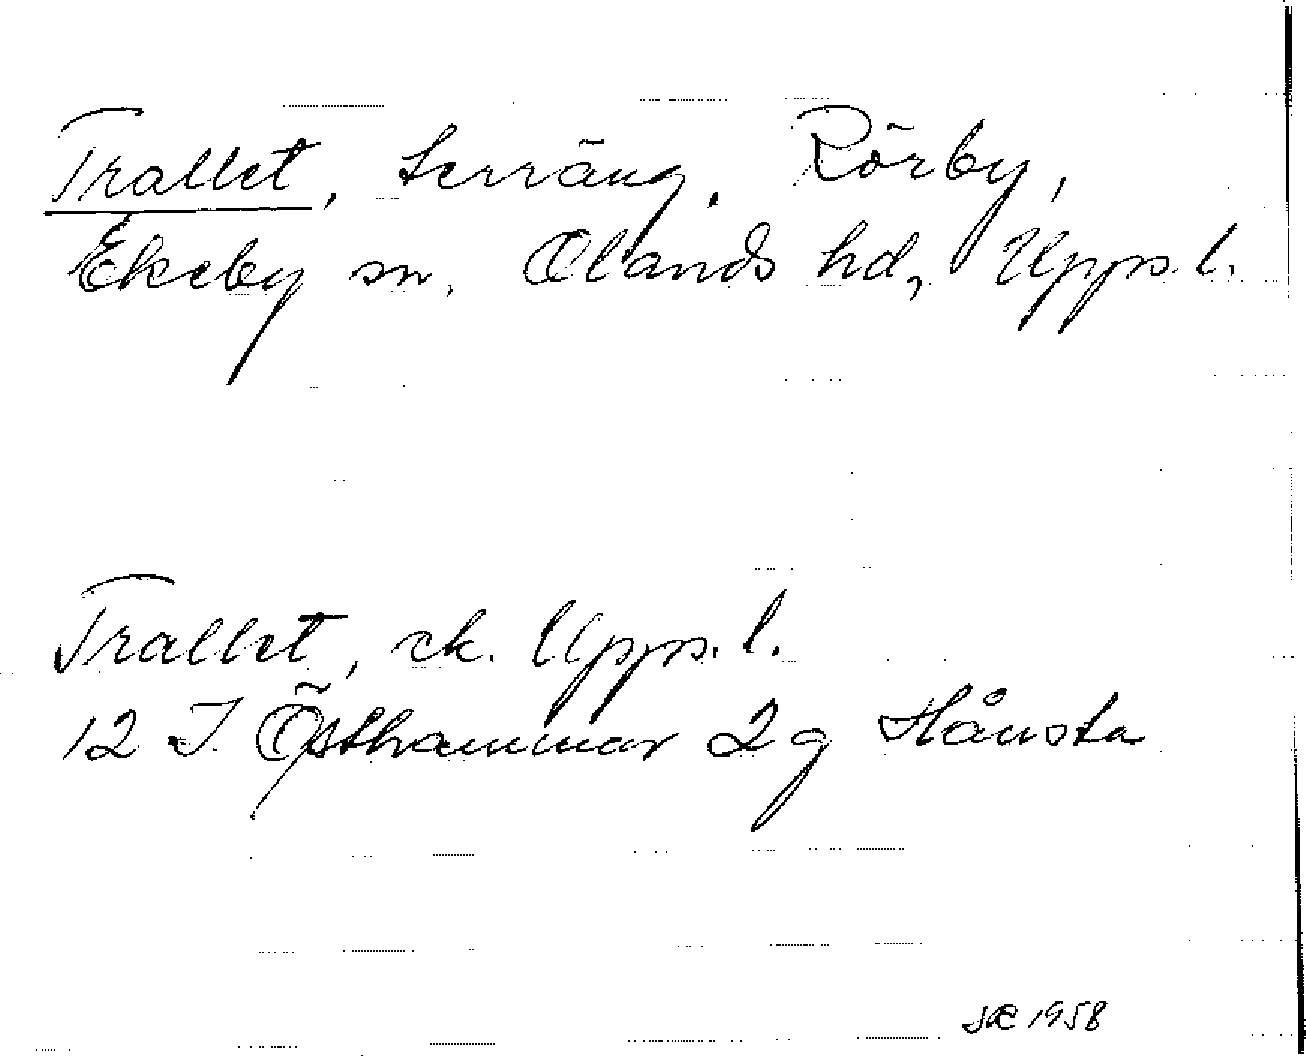 Trallet, terräng, Rörby,
Ekeby sn, Olands hd, Upps. l.
Trallet, ek. Upps. l.
12 I Östhammar 2 g Hånsta
1958